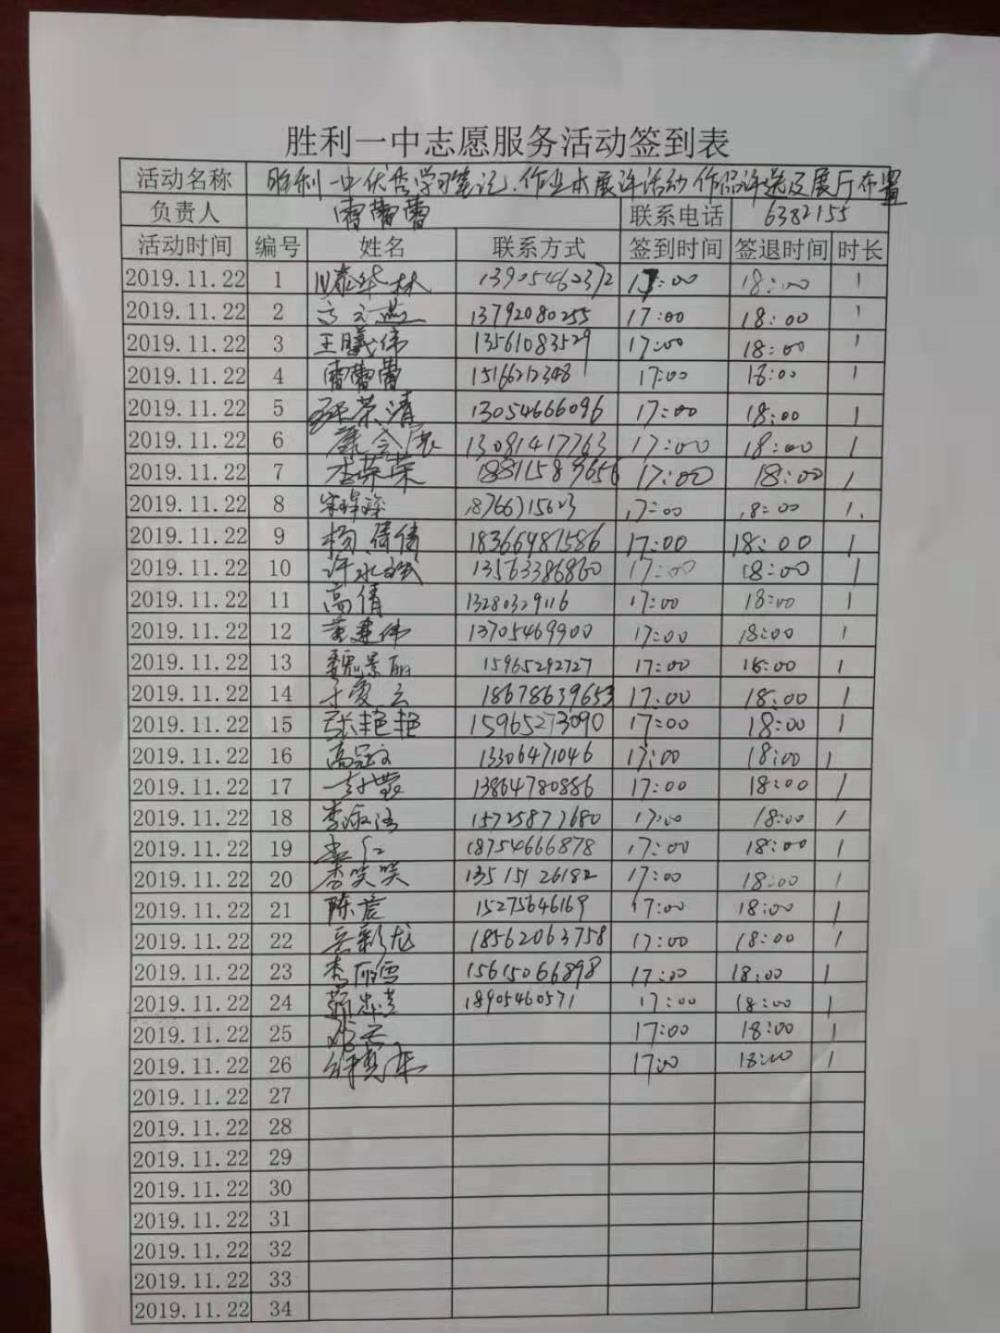 胜利一中志愿服务活动签到表
活动名称 胜利一中优秀学习笔记、作业本展评活动作品评选及展厅布置
负责人 曹蕾蕾 联系电话 6382155
活动时间 编号 姓名 联系方式 签到时间 签退时间 时长
2019.11.22 1 13905462372 17:00 18:00 1
2019.11.22 2 13792080255 17:00 18:00 1
2019.11.22 3 王曦伟 13561083529 17:00 18:00 1
2019.11.22 4 曹蕾蕾 15166212348 17:00 18:00 1
2019.11.22 5 荣清 13054666096 17:00 18:00 1
2019.11.22 6 13081417763 17:00 18:00 1
2019.11.22 7 李荣荣 18811589656 17:00 18:00 1
2019.11.22 8 18766715623 17:00 18:00 1
2019.11.22 9 杨倩倩 18366981586 17:00 18:00 1
2019.11.22 10 13563386860 17:00 18:00 1
2019.11.22 11 高倩 13280329116 17:00 18:00 1
2019.11.22 12 黄建伟 13705469900 17:00 18:00 1
2019.11.22 13 魏景丽 15965292727 17:00 18:00 1
2019.11.22 14 于爱云 18678639653 17:00 18:00 1
2019.11.22 15 张艳艳 15965273090 17:00 18:00 1
2019.11.22 16 高冠文 13306471046 17:00 18:00 1
2019.11.22 17 13864780886 17:00 18:00 1
2019.11.22 18 15725877680 17:00 18:00 1
2019.11.22 19 18754666878 17:00 18:00 1
2019.11.22 20 李笑笑 13515126182 17:00 18:00 1
2019.11.22 21 陈彦 15275646169 17:00 18:00 1
2019.11.22 22 岳彩龙 18562063758 17:00 18:00 1
2019.11.22 23 李丽雪 15615066898 17:00 18:00 1
2019.11.22 24 18905460571 17:00 18:00 1
2019.11.22 25 17:00 18:00 1
2019.11.22 26 17:00 18:00 1
2019.11.22 27
2019.11.22 28
2019.11.22 29
2019.11.22 30
2019.11.22 31
2019.11.22 32
2019.11.22 33
2019.11.22 34